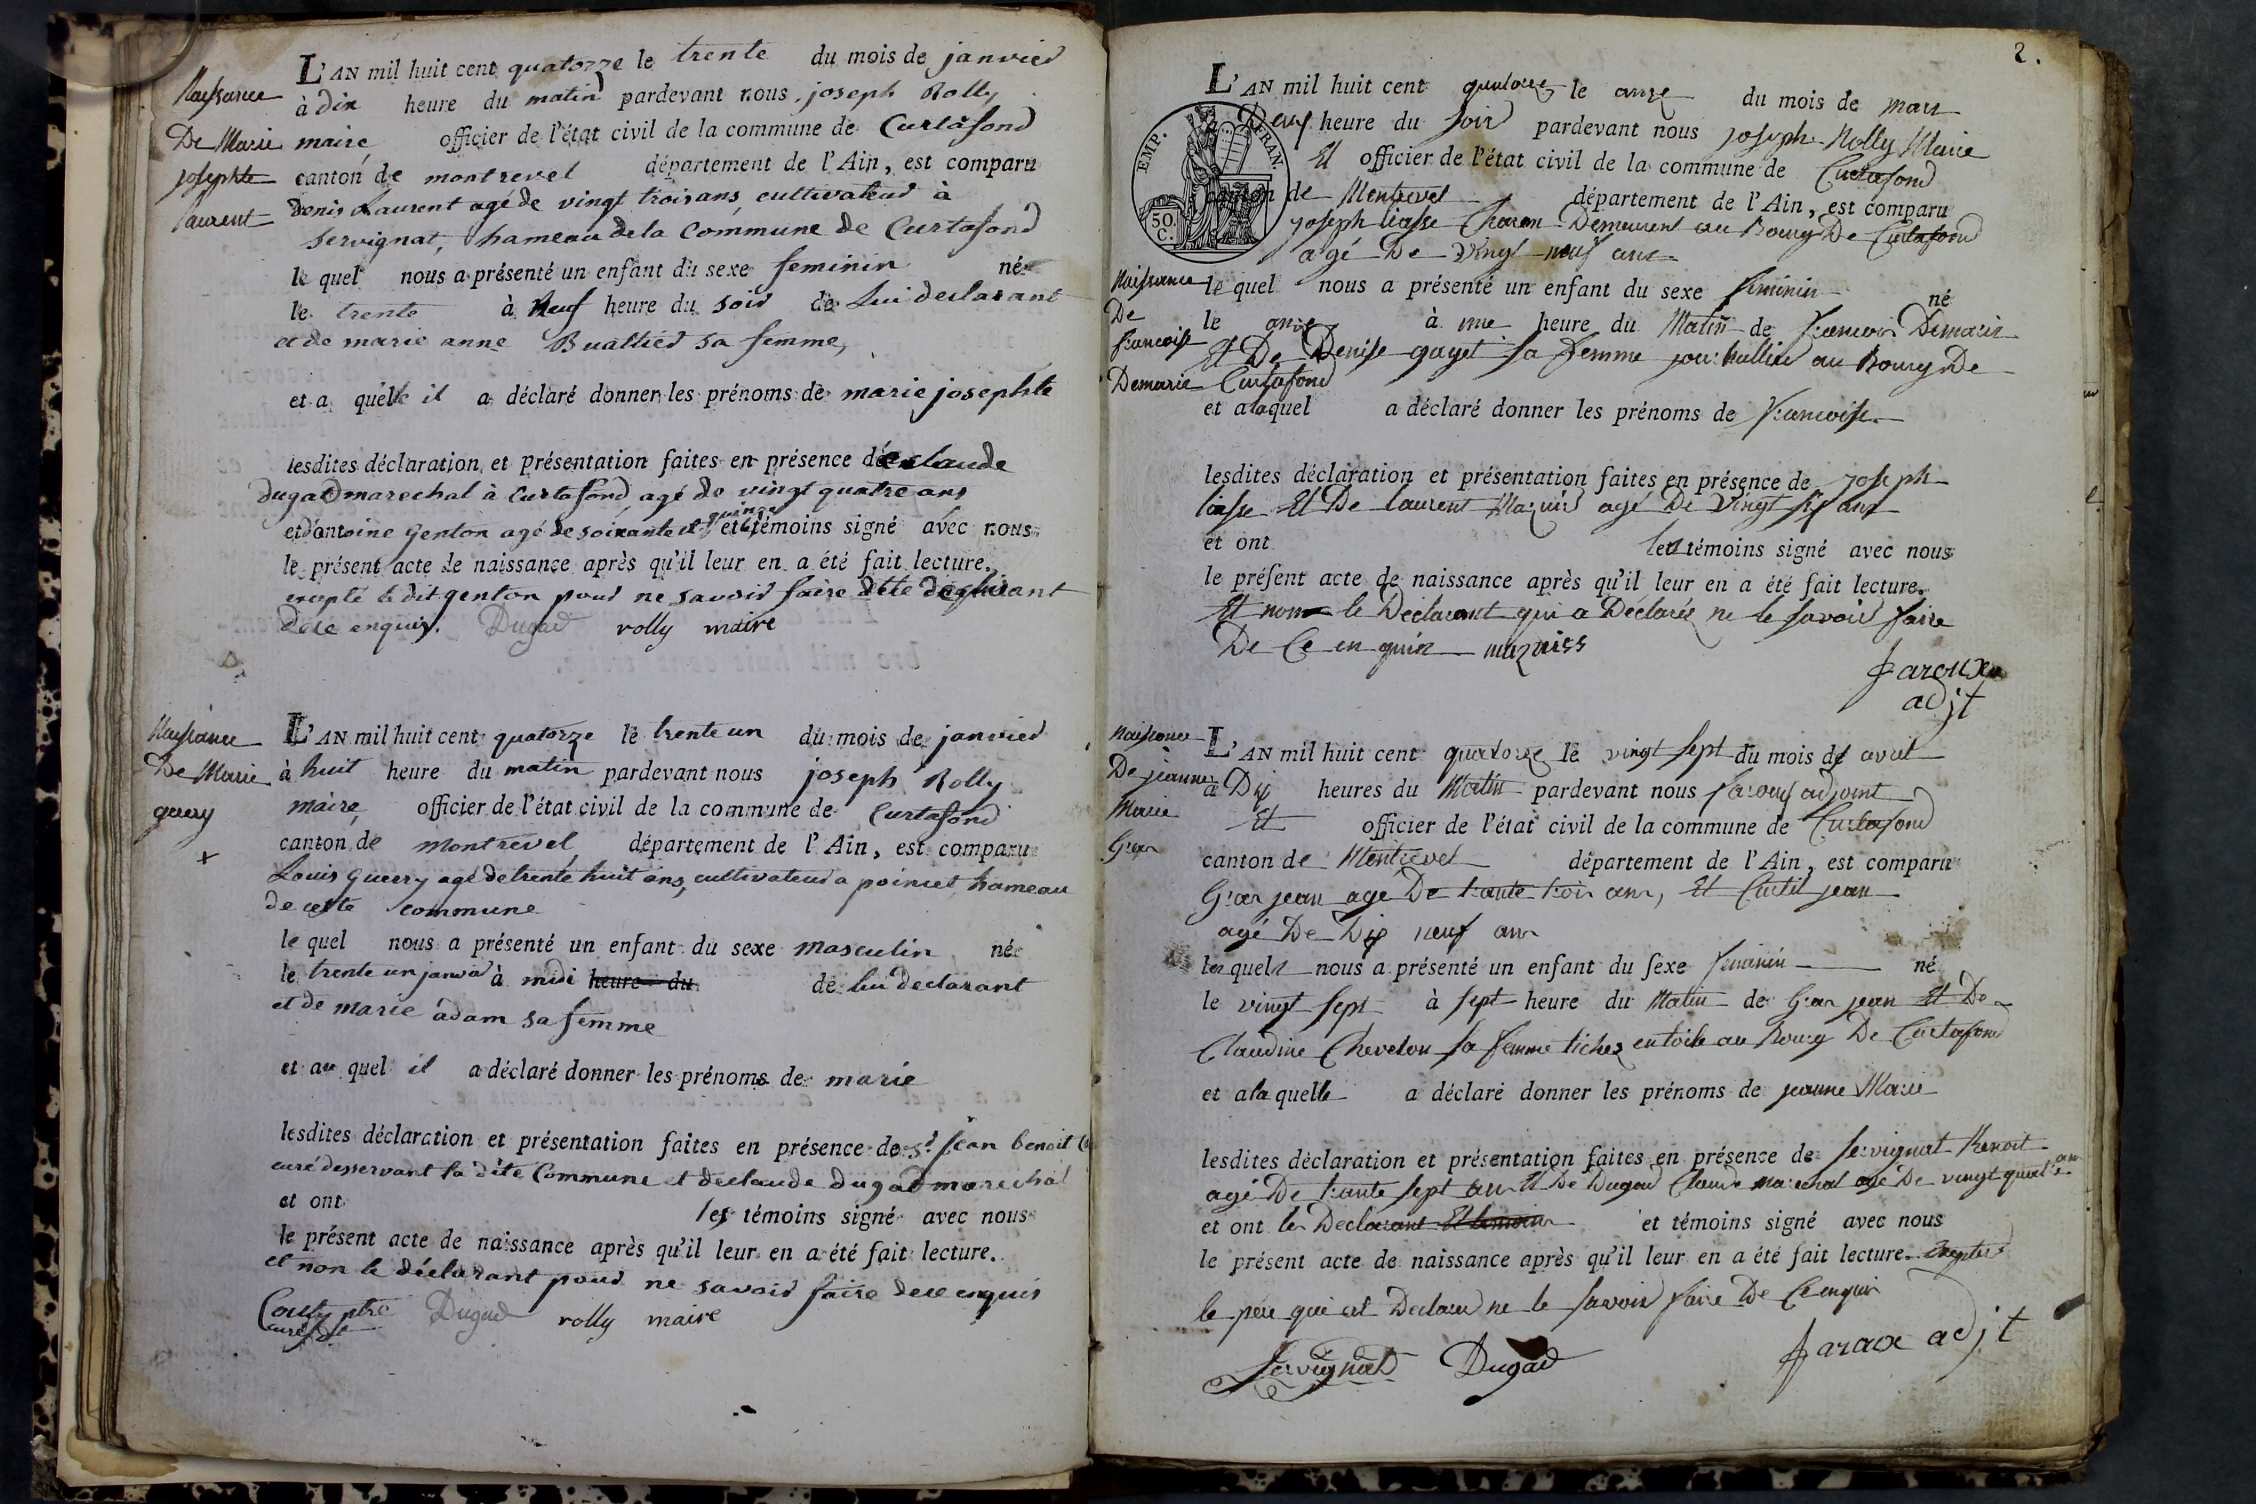 Naissance
De Marie
josephte
laurent
L'AN mil huit cent quatorze le trente du mois de janvier
à dix heure du matin pardevant nous joseph Rolly
maire officier de l'état civil de la commune de Curtafond
canton de montrevel département de l'Ain, est comparu
denis Laurent agé de vingt trois ans cultivateur à
servignat, hameau de la Commune de Curtafond
le quel nous a présenté un enfant du sexe feminin né
le trente à Neuf heure du soir de Lui declarant
et de marie anne Buathier sa femme,
et a quelle il a déclaré donner les prénoms de marie josephte
lesdites déclaration et présentation faites en présence de claude
dugad marechal à Curtafond agé de vingt quatre ans
et d'antoine genton agé de soixante et quinze et témoins signé avec nous
le présent acte de naissance après qu'il leur en a été fait lecture.
excepté le dit genton pour ne savoir faire dete
dece enquis. Dugad rolly maire
Naissance
De Marie
guery
+
L'AN mil huit cent quatorze le trente un du mois de janvier
à huit heure du matin pardevant nous joseph Rolly
maire, officier de l'état civil de la commune de Curtafond
canton de montrevel département de l'Ain, est comparu
Louis Guery agé de trente huit ans, cultivateur a poincet hameau
de cette commune
le quel nous a présenté un enfant du sexe masculin né
le trente un janvier à midi heure du de lui declarant
et de marie adam sa femme
et au quel il a déclaré donner les prénoms de marie
lesdites déclaration et présentation faites en présence de Sr jean benoit
curé desservant la dite Commune et declaude dugad marechal
et ont les témoins signé avec nous
le présent acte de naissance après qu'il leur en a été fait lecture.
et non le déclarant pour ne savoir faire dece enquis
Couty ptre Dugad rolly maire
curé
2.
EMP. FRAN.
50. C.
L'AN mil huit cent quatorze le onze du mois de mars
à Deux heure du soir pardevant nous joseph Rolly Maire
Et officier de l'état civil de la commune de Curtafond
canton de Montrevel département de l'Ain, est comparu
joseph liasse Charon Demeurent au Bourg De Curtafond
agé De Vingt neuf ans
Naissance
De
francoise
Demarie
le quel nous a présenté un enfant du sexe feminin né
le onze à une heure du Matin de francois Demarie
Et De Denise gayet sa femme journallier au Bourg De
Curtafond
et a laquel a déclaré donner les prénoms de francoise
lesdites déclaration et présentation faites en présence de joseph
liasse Et De laurent Maruis agé De Vingt six ans
et ont les témoins signé avec nous
le présent acte de naissance après qu'il leur en a été fait lecture.
Et non le Déclarant qui a Déclaré ne le savoir faire
De Ce en quis
faroux
adjt
Naissance
De jeanne
Marie
Gras
L'AN mil huit cent quatorze le vingt sept du mois de avril
à Dix heures du Matin pardevant nous faroux adjoint
Et officier de l'état civil de la commune de Curtafond
canton de Montrevel département de l'Ain, est comparu
Gras jean agé De trante trois ans, Et Curtil jean
agé De Dix neuf ans
les quels nous a présenté un enfant du sexe feminin né
le vingt sept à sept heure du Matin de Gras jean Et De
Claudine Chevelon sa femme tichez en toile au Bourg De Curtafond
et a la quelle a déclaré donner les prénoms de jeanne Marie
lesdites déclaration et présentation faites en présence de servignat Benoit
agé De trante sept ans Et De Dugad Claude marechal agé De vingt quatre ans
et ont les Declarant Et temoins et témoins signé avec nous
le présent acte de naissance après qu'il leur en a été fait lecture. Excepter
le pere qui at Declarer ne le savoir faire De Ce enquis
Servignat Dugad farax adjt